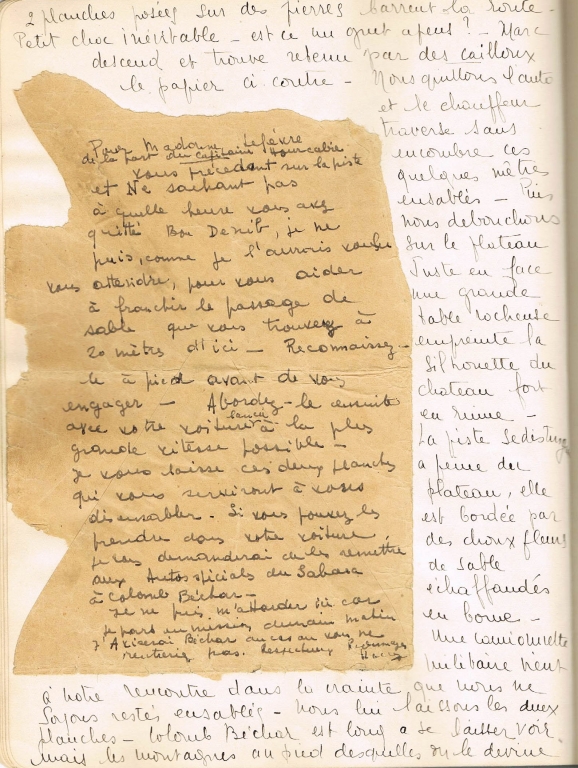 2 planches posées sur des pierres barrent la route -
Petit choc inévitable - est ce un guet apens ? - Marc
descend et trouve retenu par des cailloux
le papier ci contre - Nous quittons l'auto
et le chauffeur
traverse sans
encombre ces
quelques mètres
ensablés - Puis
nous debouchons
sur le plateau
Juste en face
une grande
table rocheuse
empreinte la
silhouette du
chateau fort
en ruine -
La piste se distingue
a peine du
plateau, elle
est bordée par
des choux fleurs
de sable
échaffaudés
en borne -
Une camionnette
militaire vient
Pour Madame Lefévre
de la part du capitaine
vous précédant sur la piste
et Ne sachant pas
à quelle heure vous avez
quitté Bou Denib, je ne
puis, comme je l'aurais voulu
vous attendre, pour vous aider
à franchir le passage de
sable que vous trouverez à
20 mètres d'ici - Reconnaissez-
le à pied avant de vous
engager - Abordez-le ensuite
avec votre voiture lancée à la plus
grande vitesse possible -
je vous laisse ces deux planches
qui vous serviront à vous
désensabler. Si vous pouvez les
prendre dans votre voiture,
je vous demanderai de les remettre
aux Autos spéciales du Sahara
à Colomb Béchar -
Je ne puis m'attarder ici car
je pars en mission demain matin
J'Aviserai Béchar au cas où vous ne
rentreriez pas.
à notre rencontre dans la crainte que nous ne
soyons restés ensablés - nous lui laissons les deux
planches - Colomb Béchar est long a se laisser voir
mais les montagnes au pied desquelles on le devine